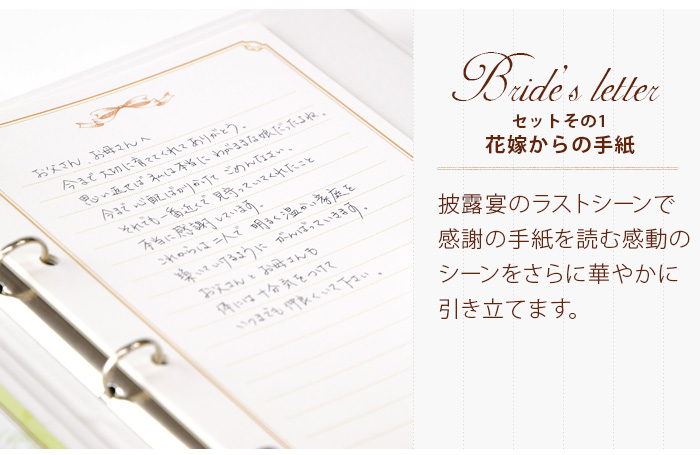 お父さん、お母さんへ
今まで大切に育ててくれてありがとう。
思い返せば私は本当にわがままな娘だったよね。
今まで心配ばかりかけてごめんなさい。
それでも一番近くで見守っていてくれたこと
本当に感謝しています。
これからは二人で明るく温かい家庭を
築いていけるようにがんばっていきます。
お父さんとお母さんも
体には十分気をつけて
いつまでも仲良くいて下さい。
Bride's letter
セットその1
花嫁からの手紙
披露宴のラストシーンで
感謝の手紙を読む感動の
シーンをさらに華やかに
引き立てます。